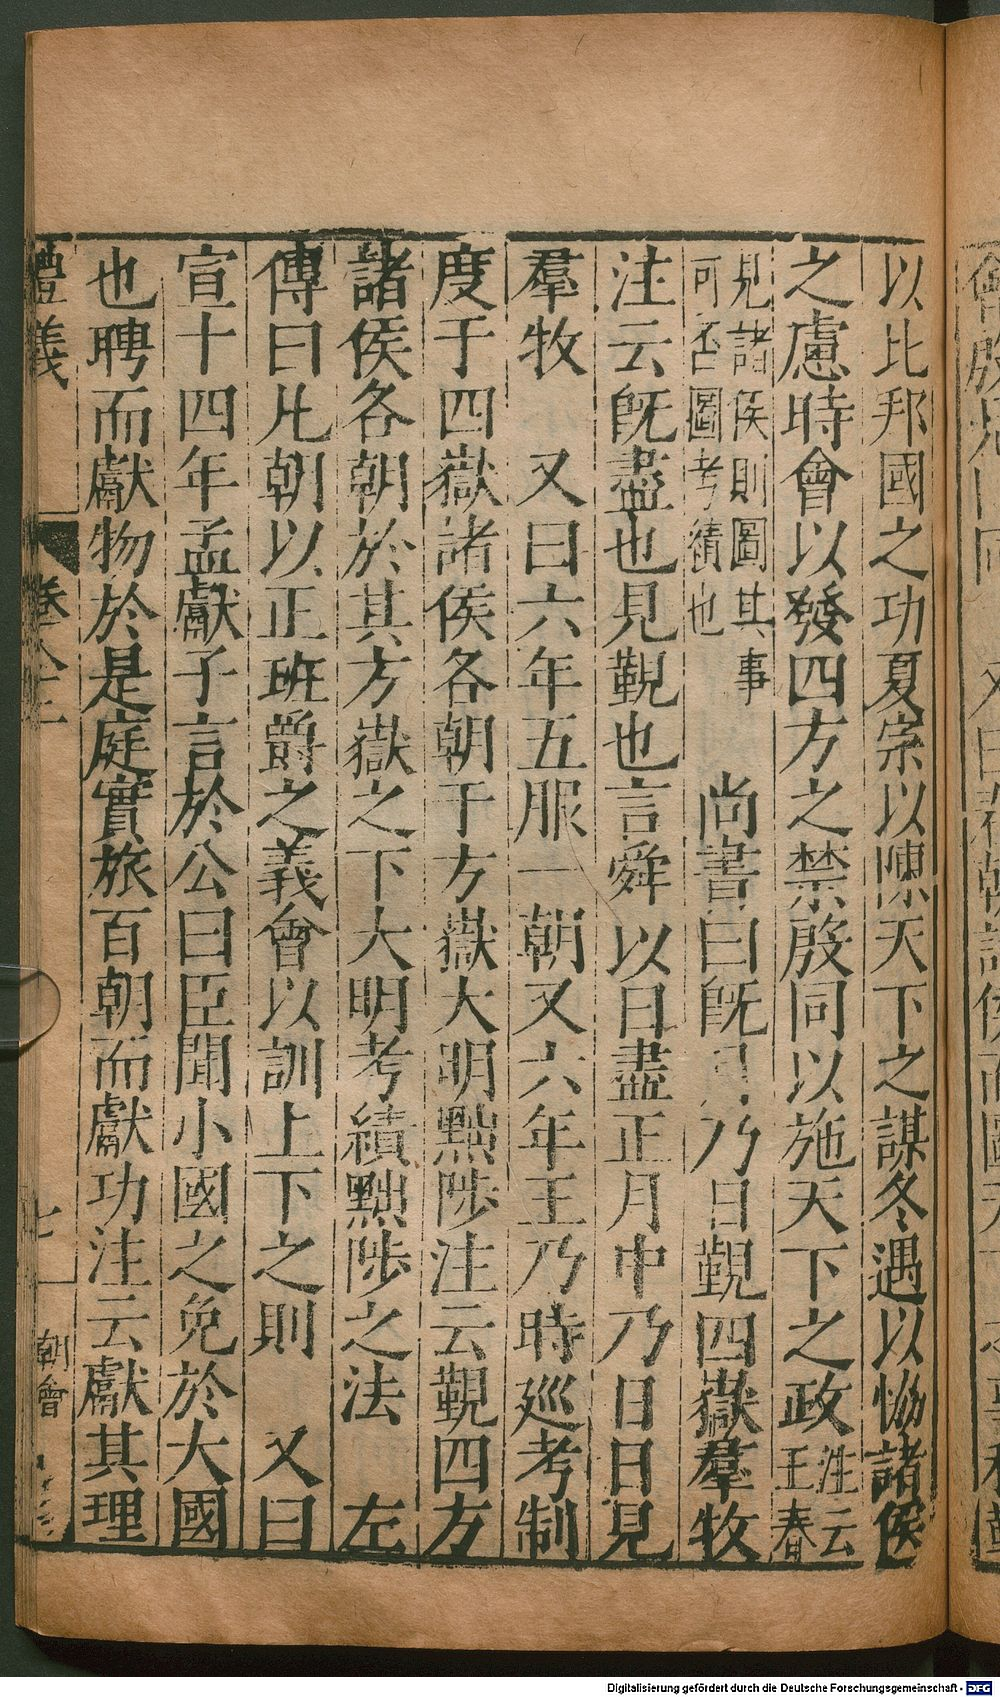 以比邦國之功夏宗以陳天下之謀冬遇以恊諸侯
之慮時會以發四方之禁殷同以施天下之政注云王春
見諸侯則圖其事可否圖考績也 尚書曰旣月乃日覲四嶽羣牧
注云旣盡也見覲也言舜以日盡正月中乃日日見
羣牧 又曰六年五服一朝又六年王乃時廵考制
度于四嶽諸侯各朝于方嶽大明黜陟注云覲四方
諸侯各朝於其方嶽之下大明考績黜陟之法 左
傳曰凡朝以正班爵之義會以訓上下之則 又曰
宣十四年孟獻子言於公曰臣聞小國之免於大國
也聘而獻物於是庭實旅百朝而獻功注云獻其理
禮義 卷 七 朝會
Digitalisierung gefördert durch die Deutsche Forschungsgemeinschaft - DFG